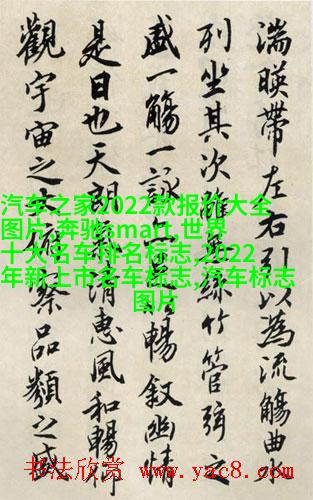 湍暎帶左右引以為流觴曲水
列坐其次雖無絲竹管弦之
盛一觴一詠亦暢敘幽情
是日也天朗氣清惠風和暢仰
觀宇宙之大俯察品類之盛
汽车之家2022款报价大全
图片,奔驰smart,世界
十大名车排名标志,2022
年新上市名车标志,汽车标志
图片
书法欣赏 www.yac8.com